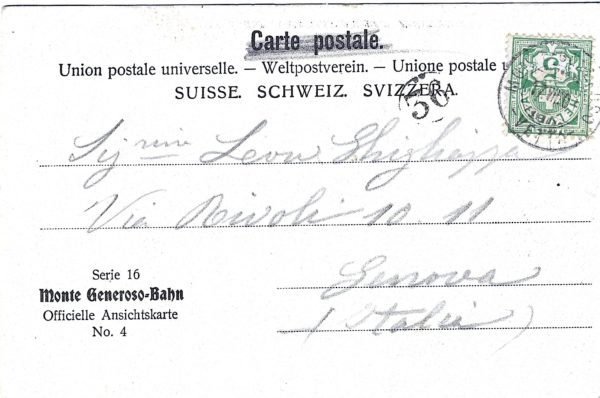 Carte postale.
Union postale universelle. — Weltpostverein. — Unione postale
SUISSE. SCHWEIZ. SVIZZERA.
56
5
Leon
Via Rivoli 10 11
Genova
(Italia)
Serie 16
Monte Generoso-Bahn
Officielle Ansichtskarte
No. 4